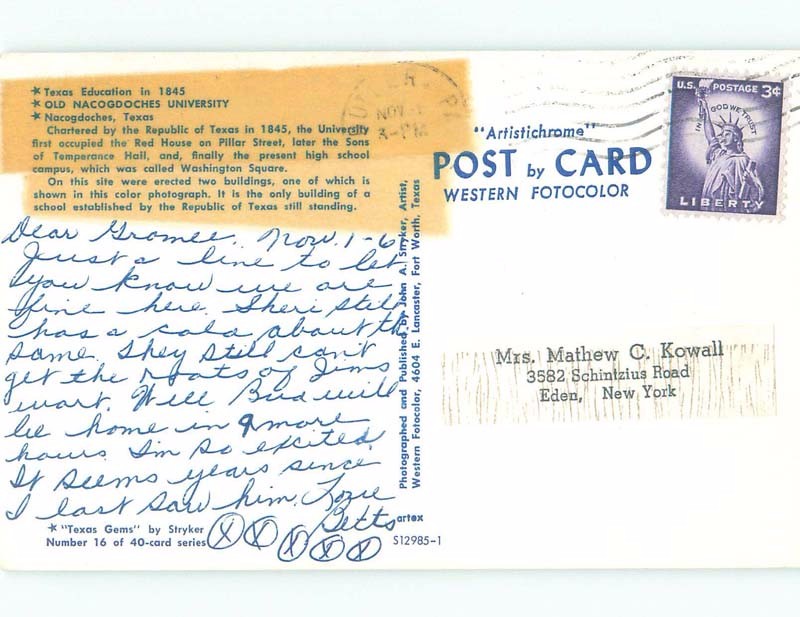 ★ Texas Education in 1845
★ OLD NACOGDOCHES UNIVERSITY
★ Nacogdoches, Texas
Chartered by the Republic of Texas in 1845, the University
first occupied the Red House on Pillar Street, later the Sons
of Temperance Hall, and, finally the present high school
campus, which was called Washington Square.
On this site were erected two buildings, one of which is
shown in this color photograph. It is the only building of a
school established by the Republic of Texas still standing.
Dear Gramee, Nov. 1-6
Just a line to let
you know we are
fine here. Sheri still
has a cold about th
same. They still can't
get the roots of Jims
wart. Well Bud will
be home in 9 more
hours I'm so excited.
It seems years since
I last saw him. Love
Betts
X X X X X
★ "Texas Gems" by Stryker
Number 16 of 40-card series
Photographed and Published by John A. Stryker, Artist,
Western Fotocolor, 4604 E. Lancaster, Fort Worth, Texas
artex
S12985-1
NOV
"Artistichrome"
POST by CARD
WESTERN FOTOCOLOR
U.S. POSTAGE 3¢
IN GOD WE TRUST
LIBERTY
Mrs. Mathew C. Kowall
3582 Schintzius Road
Eden, New York